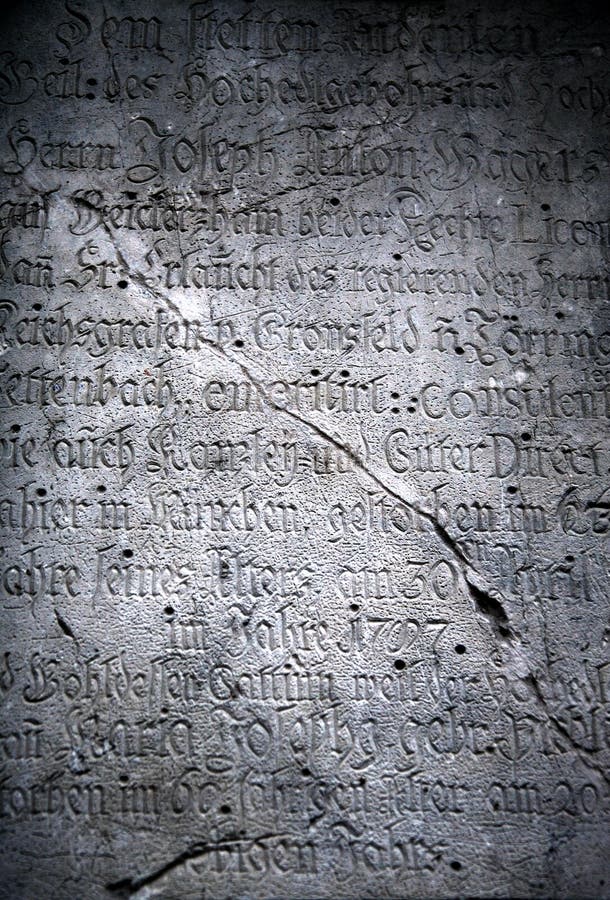 Dem stetten Andenken
Weil: des Hochedlgebohr: und Hoch
Herrn Joseph Anton Wagers
auf bender Rechte Licen
dan Sr: Erlaucht des regierenden Herrn
Reichsgrafen v. Gronsfeld ũ Törring
Jettenbach, emeritirt: consulent
wie auch Kanzley und Güter Direct
dahier in München, gestorben im 67
Jahre seines Alters am 30 April
im Jahre 1797
Wohldessen Gattiin weil der Hochedl
Maria Josepha gebr:
storben im 60 jährigen Alter am 20
Jahrs.